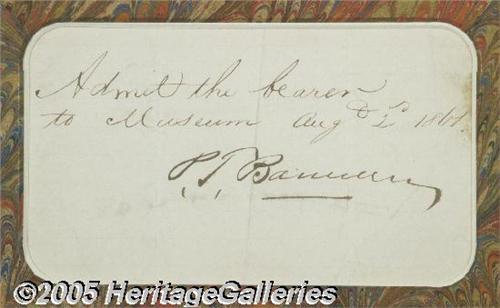 Admit the bearer
to Museum Aug 2d 1861.
P. T. Barnum
©2005 HeritageGalleries